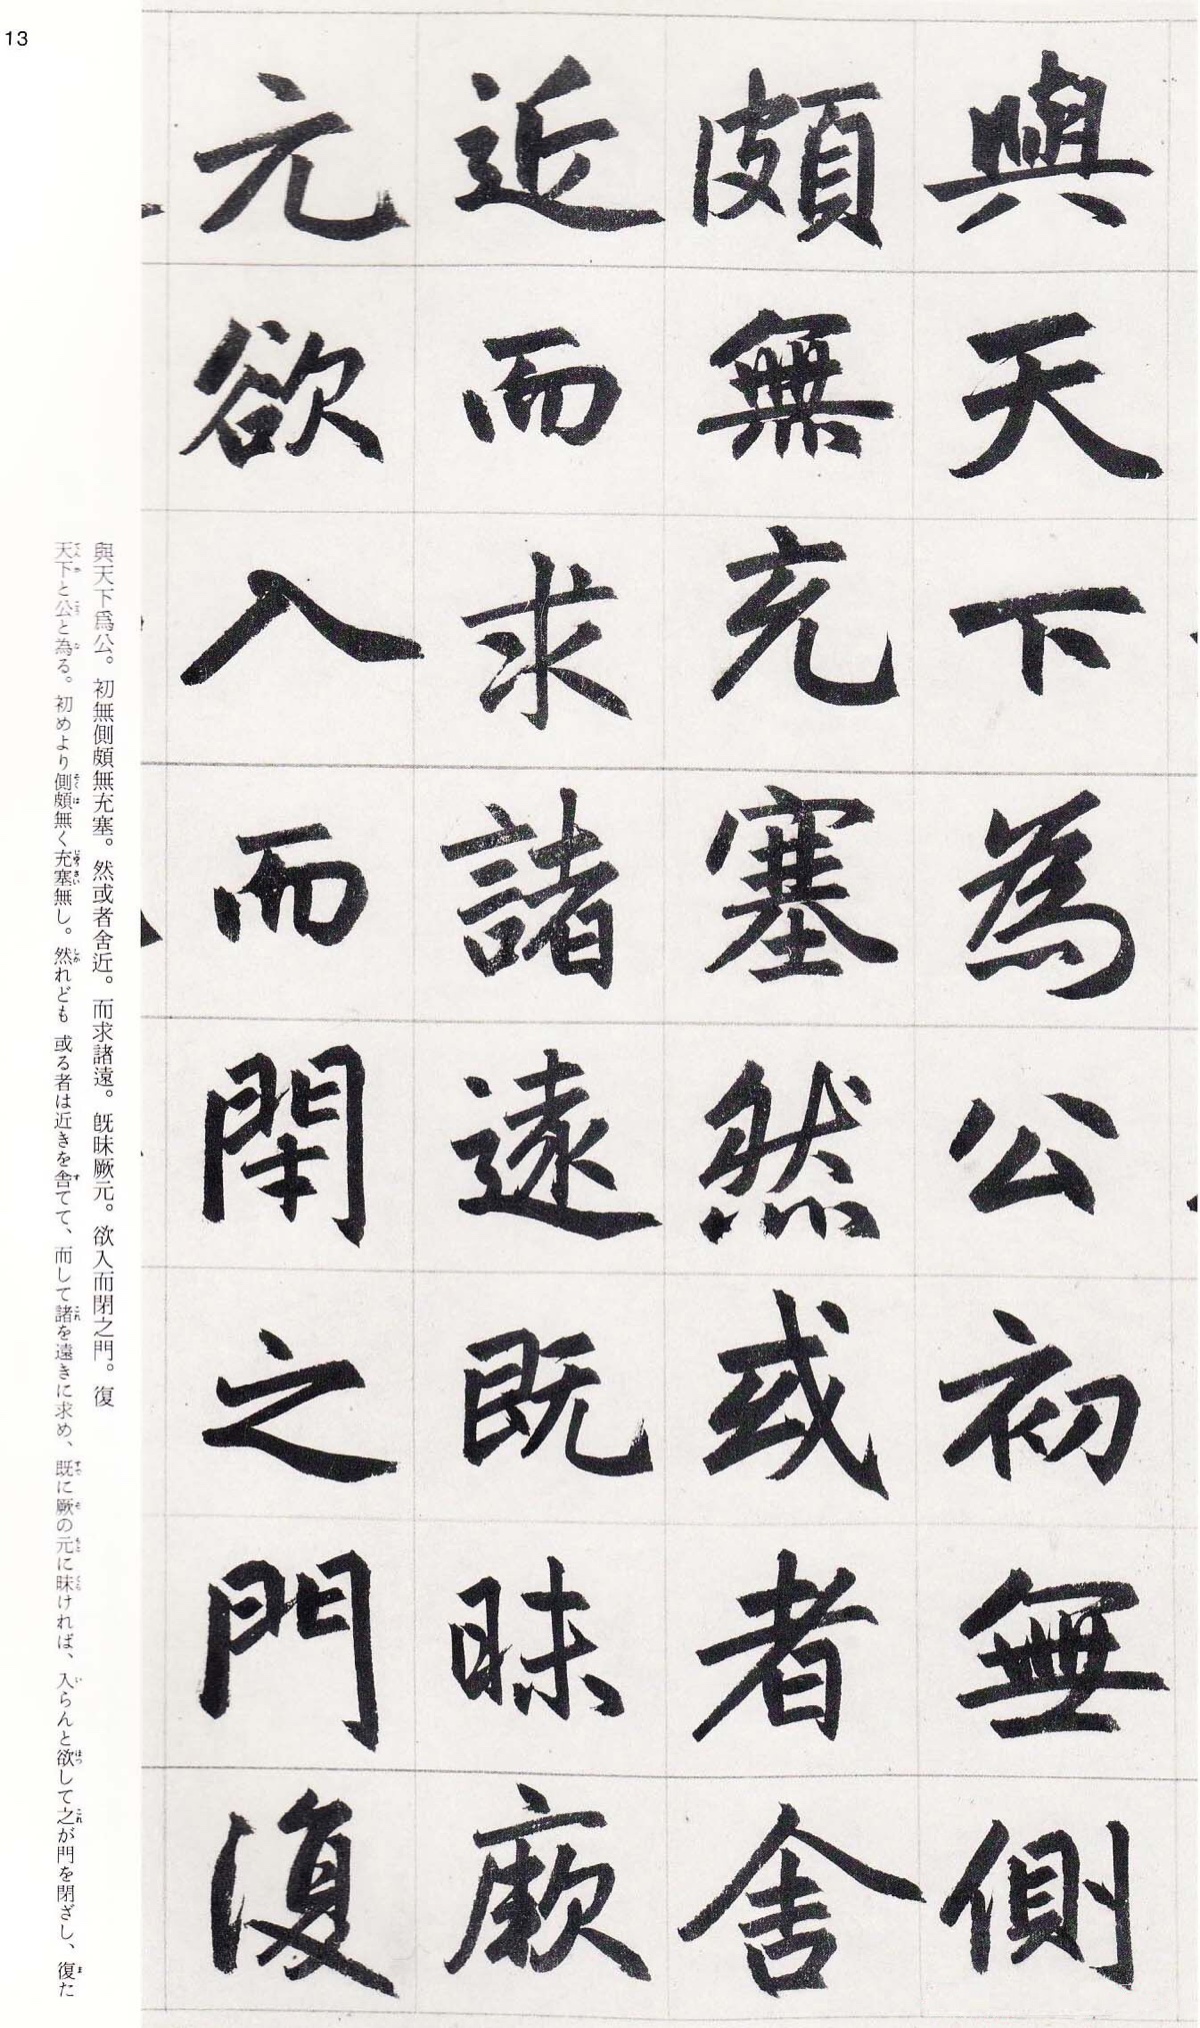 與天下為公初無側
頗無充塞然或者舍
近而求諸遠既昧厥
元欲入而閇之門復
與天下爲公。初無側頗無充塞。然或者舍近。而求諸遠。既昧厥元。欲入而閉之門。復
天下と公と為る。初めより側頗無く充塞無し。然れども 或る者は近きを舎てて、而して諸を遠きに求め、既に厥の元に昧ければ、入らんと欲して之が門を閉ざし、復た
13